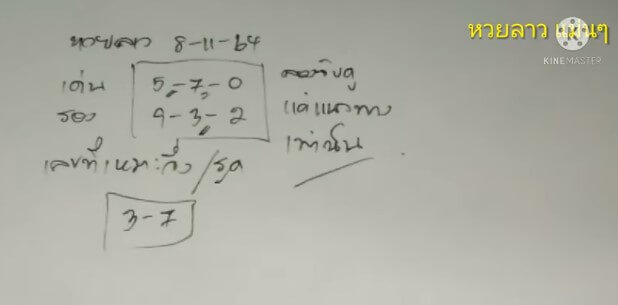 หวยลาว แม่นๆ
KINEMASTER
หวยลาว 8-11-64
เด่น 5-7-0
รอง 9-3-2
ลองจับดู
แค่แนวทาง
เท่านั้น
เลขที่เหมาะวิ่ง/รูด
3-7